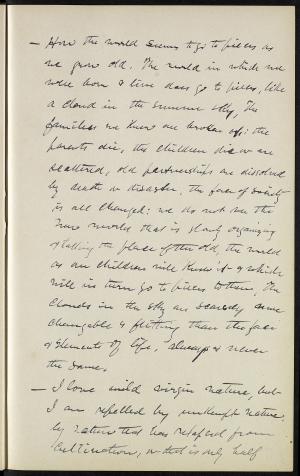 — How the world seems to go to pieces as
we grow old. The world in which we
were born & live does go to pieces, like
a cloud in the summer sky. The
families we knew are broken up; the
parents die, the children die or are
scattered, old partnerships are dissolved
by death or disaster, the face of society
is all changed; we do not see the
new world that is slowly organizing
& taking the place of the old, the world
as our children will know it & which
will in turn go to pieces to them. The
clouds in the sky are scarcely more
changable & flitting than the face
& elements of life, always & never
the same.
— I love wild virgin nature, but
I am repelled by unkempt nature,
by nature that has relapsed from
cultivation, or that is only half